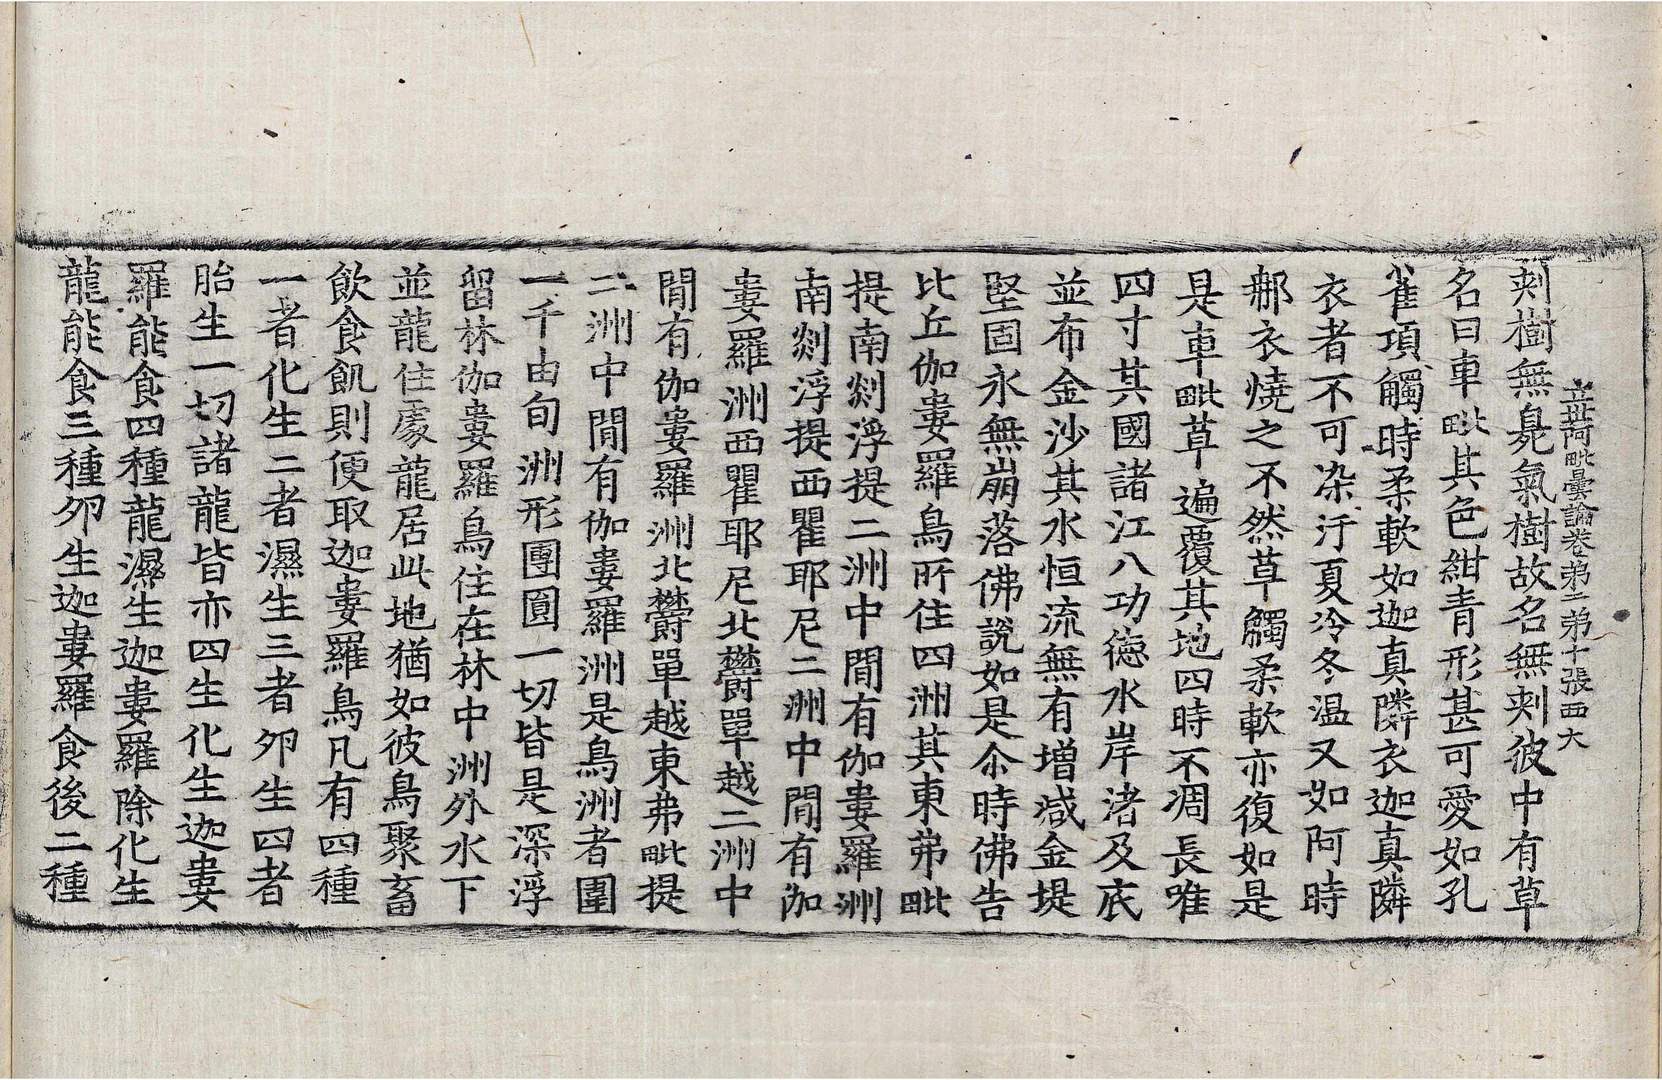 立世阿毗曇論卷苐二苐十張西大
刾樹無臭氣樹故名無刾彼中有草
名曰車毗其色紺青形甚可愛如孔
雀項觸時柔軟如迦真隣衣迦真隣
衣者不可染汙夏冷冬温又如阿時
𨚗衣燒之不然草觸柔軟亦復如是
是車毗草遍覆其地四時不凋長唯
四寸其國諸江八功德水岸渚及底
並布金沙其水恒流無有增减金堤
堅固永無崩落佛說如是尒時佛告
比丘伽婁羅鳥所住四洲其東弗毗
提南剡浮提二洲中間有伽婁羅洲
南剡浮提西瞿耶尼二洲中間有伽
婁羅洲西瞿耶尼北欝單越二洲中
間有伽婁羅洲北欝單越東弗毗提
二洲中間有伽婁羅洲是鳥洲者圍
一千由旬洲形團圓一切皆是深浮
留林伽婁羅鳥住在林中洲外水下
並龍住處龍居此地猶如彼鳥聚畜
飲食飢則便取迦婁羅鳥凡有四種
一者化生二者濕生三者夘生四者
胎生一切諸龍皆亦四生化生迦婁
羅能食四種龍濕生迦婁羅除化生
龍能食三種夘生迦婁羅食後二種